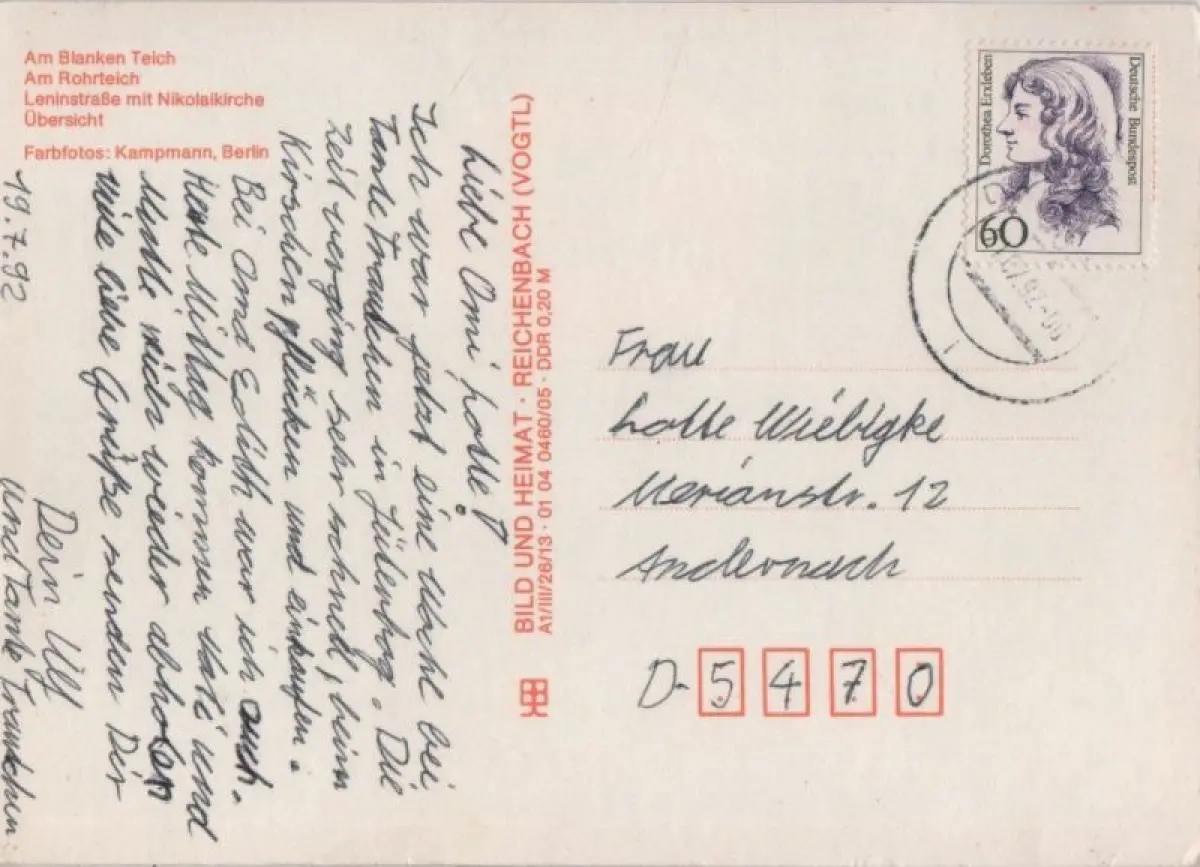 Am Blanken Teich
Am Rohrteich
Leninstraße mit Nikolaikirche
Übersicht
Farbfotos: Kampmann, Berlin
19.7.92
Liebe Omi Lotte!
Ich war jetzt eine Woche bei
Tante Traudchen in Jüterbog. Die
Zeit verging sehr schnell, beim
Kirschen pflücken und einkaufen.
Bei Oma Edith war ich auch.
Heute Mittag kommen Vati und
Mutti mich wieder abholen
viele liebe Grüße senden Dir
Dein Ulf
und Tante Traudchen.
BILD UND HEIMAT · REICHENBACH (VOGTL)
A1/III/26/13 · 01 04 0460/05 · DDR 0,20 M
Dorothea Erxleben
Deutsche Bundespost
60
Frau
Lotte Wiebigke
Merianstr. 12
Andernach
D-5470